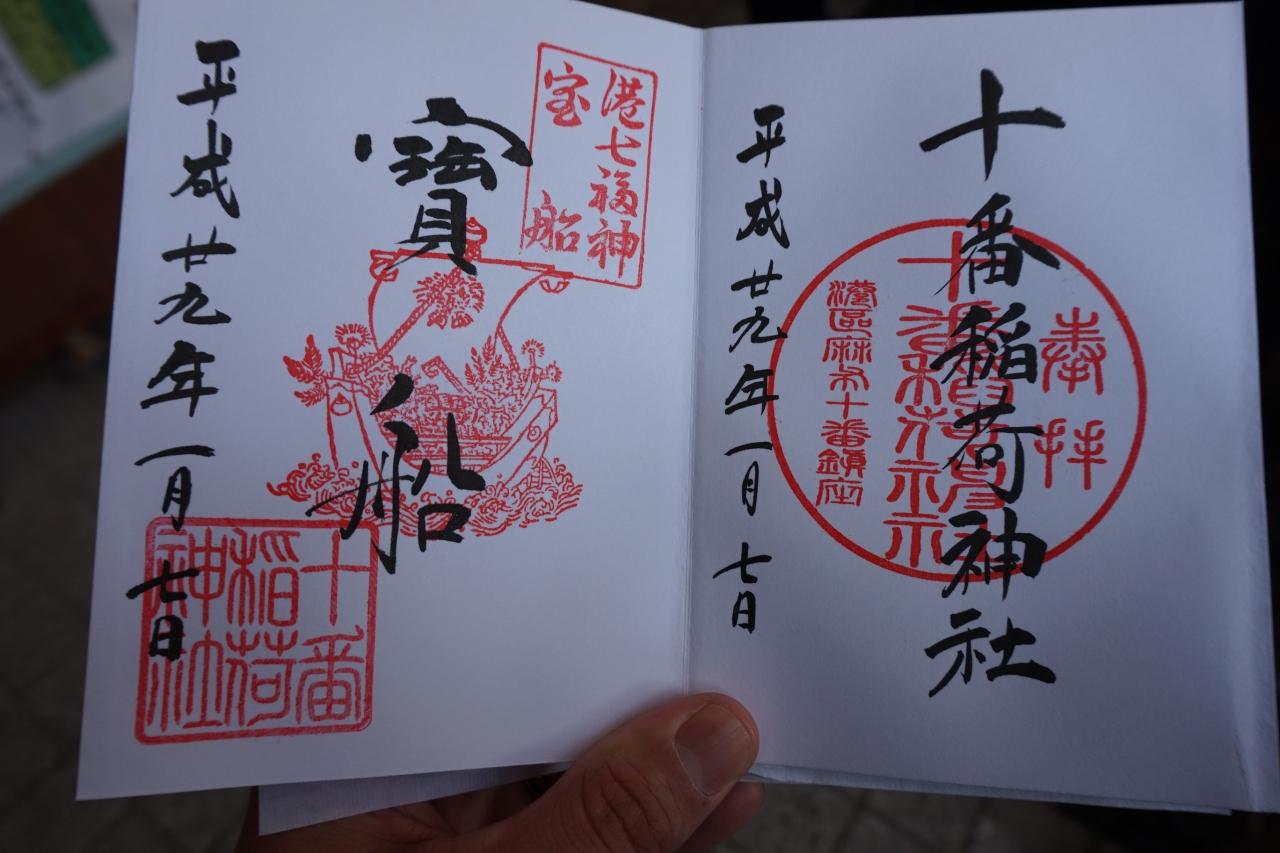 十番稲荷神社
奉拝
十番稲荷神社
港區麻布十番鎮座
平成廿九年一月七日
港七福神
宝船
寶船
平成廿九年一月七日
十番
稲荷
神社